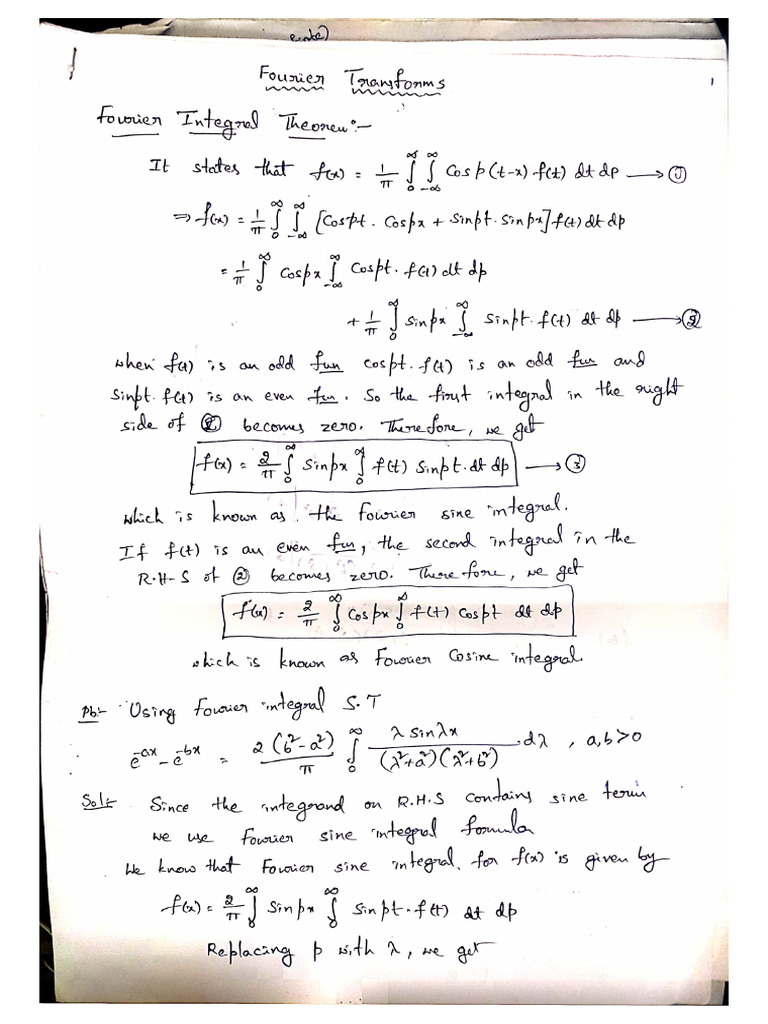 Fourier Transforms
1
Fourier Integral Theorem:-
It states that f(x) = 1/π ∫₀^∞ ∫₋∞^∞ Cos p(t-x) f(t) dt dp → ①
⇒ f(x) = 1/π ∫₀^∞ ∫₋∞^∞ [Cospt. Cospx + Sinpt. Sinpx] f(t) dt dp
= 1/π ∫₀^∞ Cospx ∫₋∞^∞ Cospt. f(t) dt dp
+ 1/π ∫₀^∞ Sinpx ∫₋∞^∞ Sinpt. f(t) dt dp → ②
when f(t) is an odd fun cospt. f(t) is an odd fun and
Sinpt. f(t) is an even fun. So the first integral in the right
side of ② becomes zero. Therefore, we get
f(x) = 2/π ∫₀^∞ Sinpx ∫₀^∞ f(t) Sinpt. dt dp → ③
which is known as the fourier sine integral.
If f(t) is an even fun, the second integral in the
R.H-S of ② becomes zero. Therefore, we get
f(x) = 2/π ∫₀^∞ Cospx ∫₀^∞ f(t) Cospt dt dp
which is known as Fourier Cosine integral.
Pb:- Using Fourier integral S.T
e^-ax - e^-bx = 2(b²-a²)/π ∫₀^∞ λ Sinλx/(λ²+a²)(λ²+b²) .dλ , a,b>0
Sol:- Since the integrand on R.H.S contains sine term
we use Fourier sine integral formula
We know that Fourier sine integral for f(x) is given by
f(x) = 2/π ∫₀^∞ Sinpx ∫₀^∞ Sinpt. f(t) dt dp
Replacing p with λ, we get